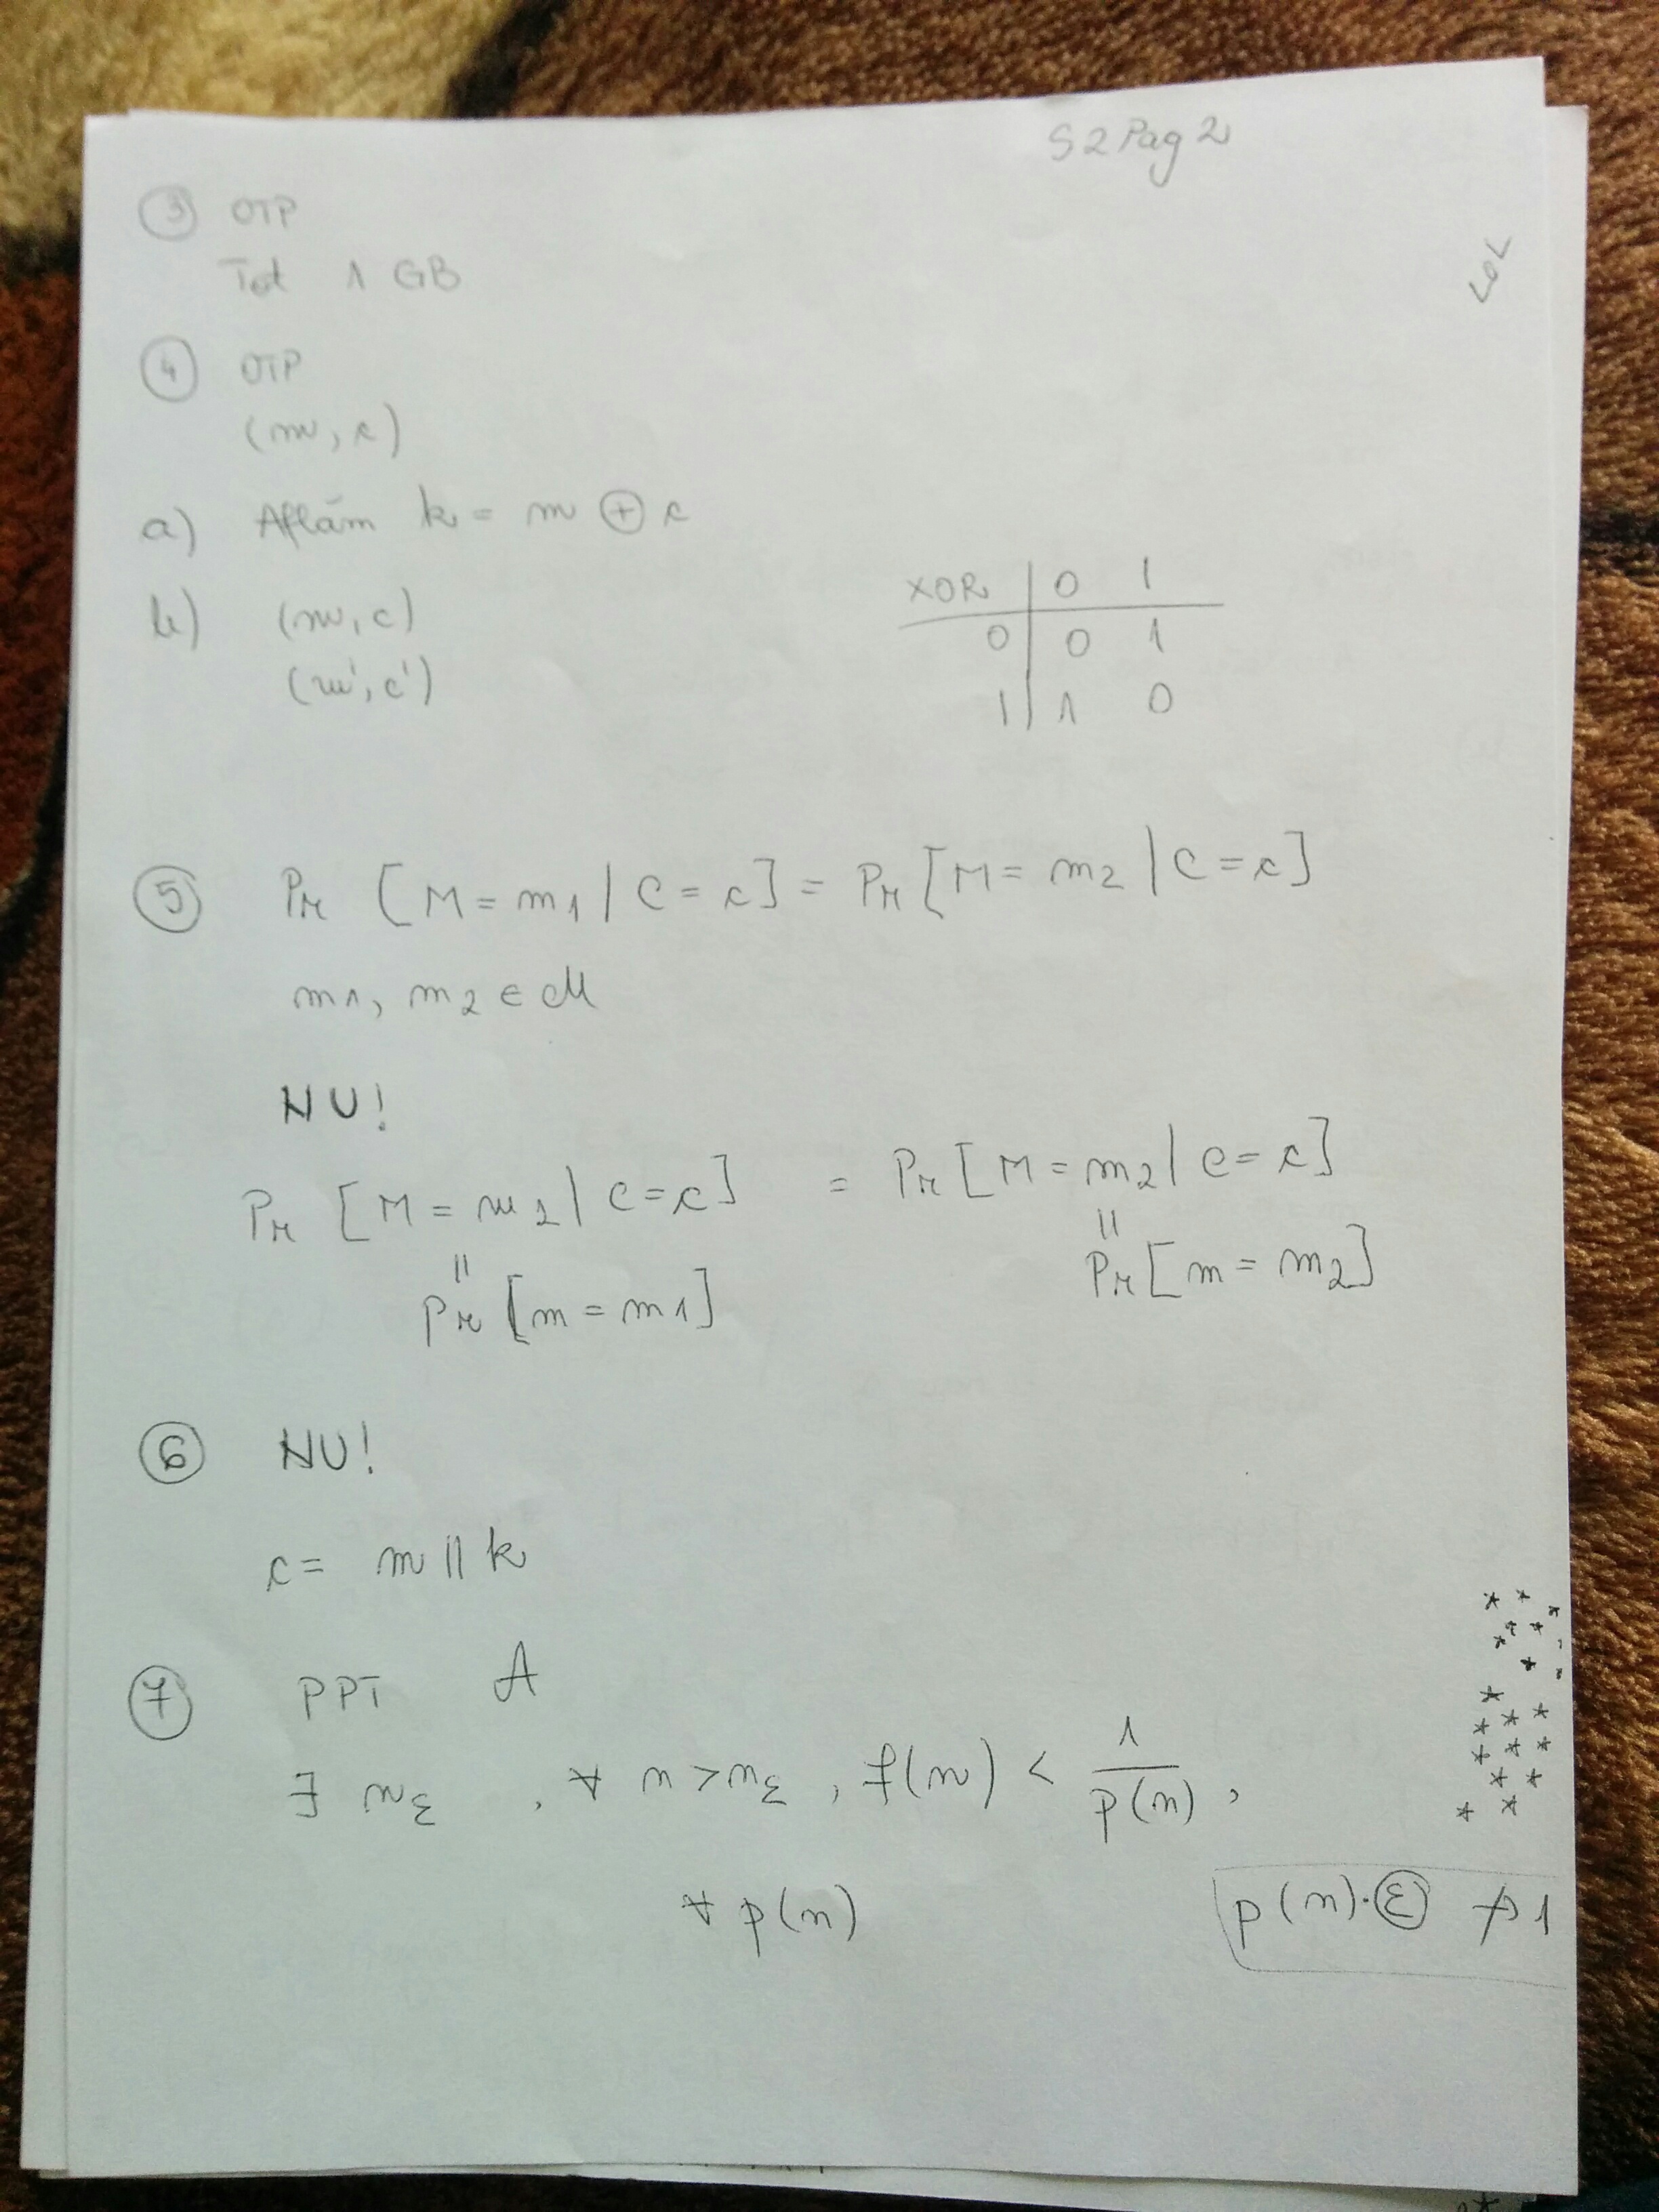 S2 Pag 2
LOL
③ OTP
Tot 1 GB
④ OTP
(m, c)
a) Aflăm k = m ⊕ c
b) (m, c)
(m', c')
XOR | 0 1
0 | 0 1
1 | 1 0
⑤ Pr [M = m1 | C = c] = Pr [M = m2 | C = c]
m1, m2 ∈ M
NU!
Pr [M = m1 | C = c] = Pr [M = m2 | C = c]
= =
Pr [m = m1] Pr [m = m2]
⑥ NU!
c = m || k
⑦ PPT A
∃ nε, ∀ n > nε, f(n) < 1/p(n),
∀ p(n)
p(n)·ε ↛ 1